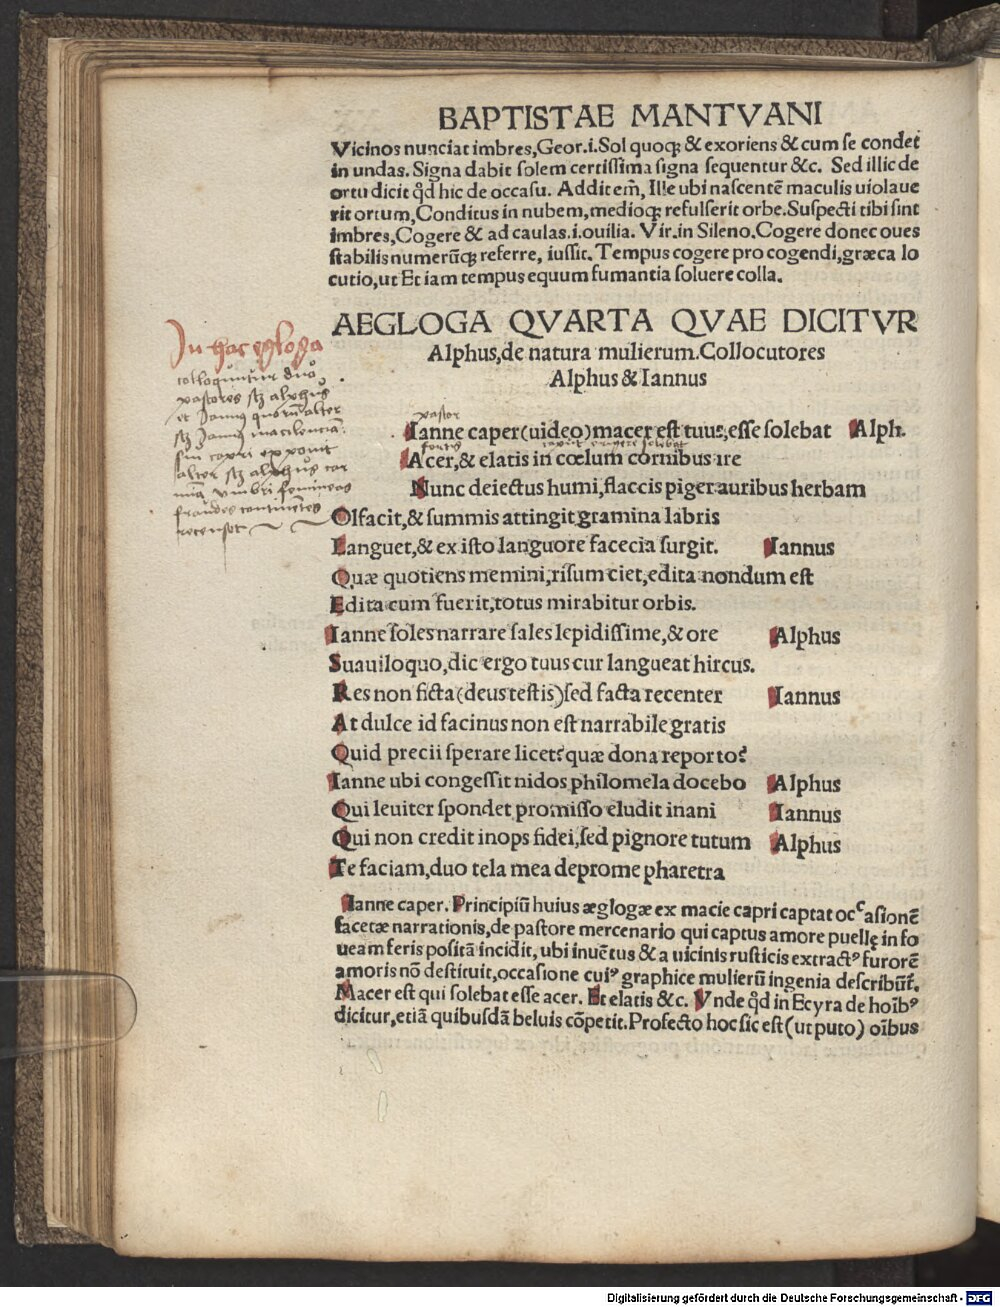 BAPTISTAE MANTVANI
Vicinos nunciat imbres, Geor.i. Sol quoqꝫ & exoriens & cum se condet
in undas. Signa dabit solem certissima signa sequentur &c. Sed illic de
ortu dicit qd̄ hic de occasu. Addit em̄, Ille ubi nascentē maculis uiolaue
rit ortum, Conditus in nubem, medioqꝫ refulserit orbe. Suspecti tibi sint
imbres, Cogere & ad caulas.i.ouilia. Vir.in Sileno. Cogere donec oues
stabilis numerūqꝫ referre, iussit. Tempus cogere pro cogendi, græca lo
cutio, ut Et iam tempus equum fumantia soluere colla.
AEGLOGA QVARTA QVAE DICITVR
Alphus, de natura mulierum. Collocutores
Alphus & Iannus
In hac egloga
colloquuntur duo
pastores scꝫ alphus
et Jannus quorū alter
scꝫ Jannus macilenciā
sui capri exponit
alter scꝫ alphus car
mina vmbri femineas
fraudes continētes
recenset
pastor
Ianne caper (uideo) macer est tuus, esse solebat Alph.
fortis caput erigere solebat
Acer, & elatis in cœlum cornibus ire
Nunc deiectus humi, flaccis piger auribus herbam
Olfacit, & summis attingit gramina labris
Languet, & ex isto languore facecia surgit. Iannus
Quæ quotiens memini, risum ciet, edita nondum est
Edita cum fuerit, totus mirabitur orbis.
Ianne soles narrare sales lepidissime, & ore Alphus
Suauiloquo, dic ergo tuus cur langueat hircus.
Res non ficta (deus testis) sed facta recenter Iannus
At dulce id facinus non est narrabile gratis
Quid precii sperare licet? quæ dona reporto?
Ianne ubi congessit nidos philomela docebo Alphus
Qui leuiter spondet promisso eludit inani Iannus
Qui non credit inops fidei, sed pignore tutum Alphus
Te faciam, duo tela mea deprome pharetra
Ianne caper. Principiū huius æglogæ ex macie capri captat occasionē
facetæ narrationis, de pastore mercenario qui captus amore puellę in fo
ueam feris positā incidit, ubi inuētus & a uicinis rusticis extractꝰ furorē
amoris nō destituit, occasione cuiꝰ graphice mulierū ingenia describūt̄.
Macer est qui solebat esse acer. Et elatis &c. Vnde qd̄ in Ecyra de hoībꝰ
dicitur, etiā quibusdā beluis cōpetit. Profecto hoc sic est (ut puto) oībus
Digitalisierung gefördert durch die Deutsche Forschungsgemeinschaft - DFG